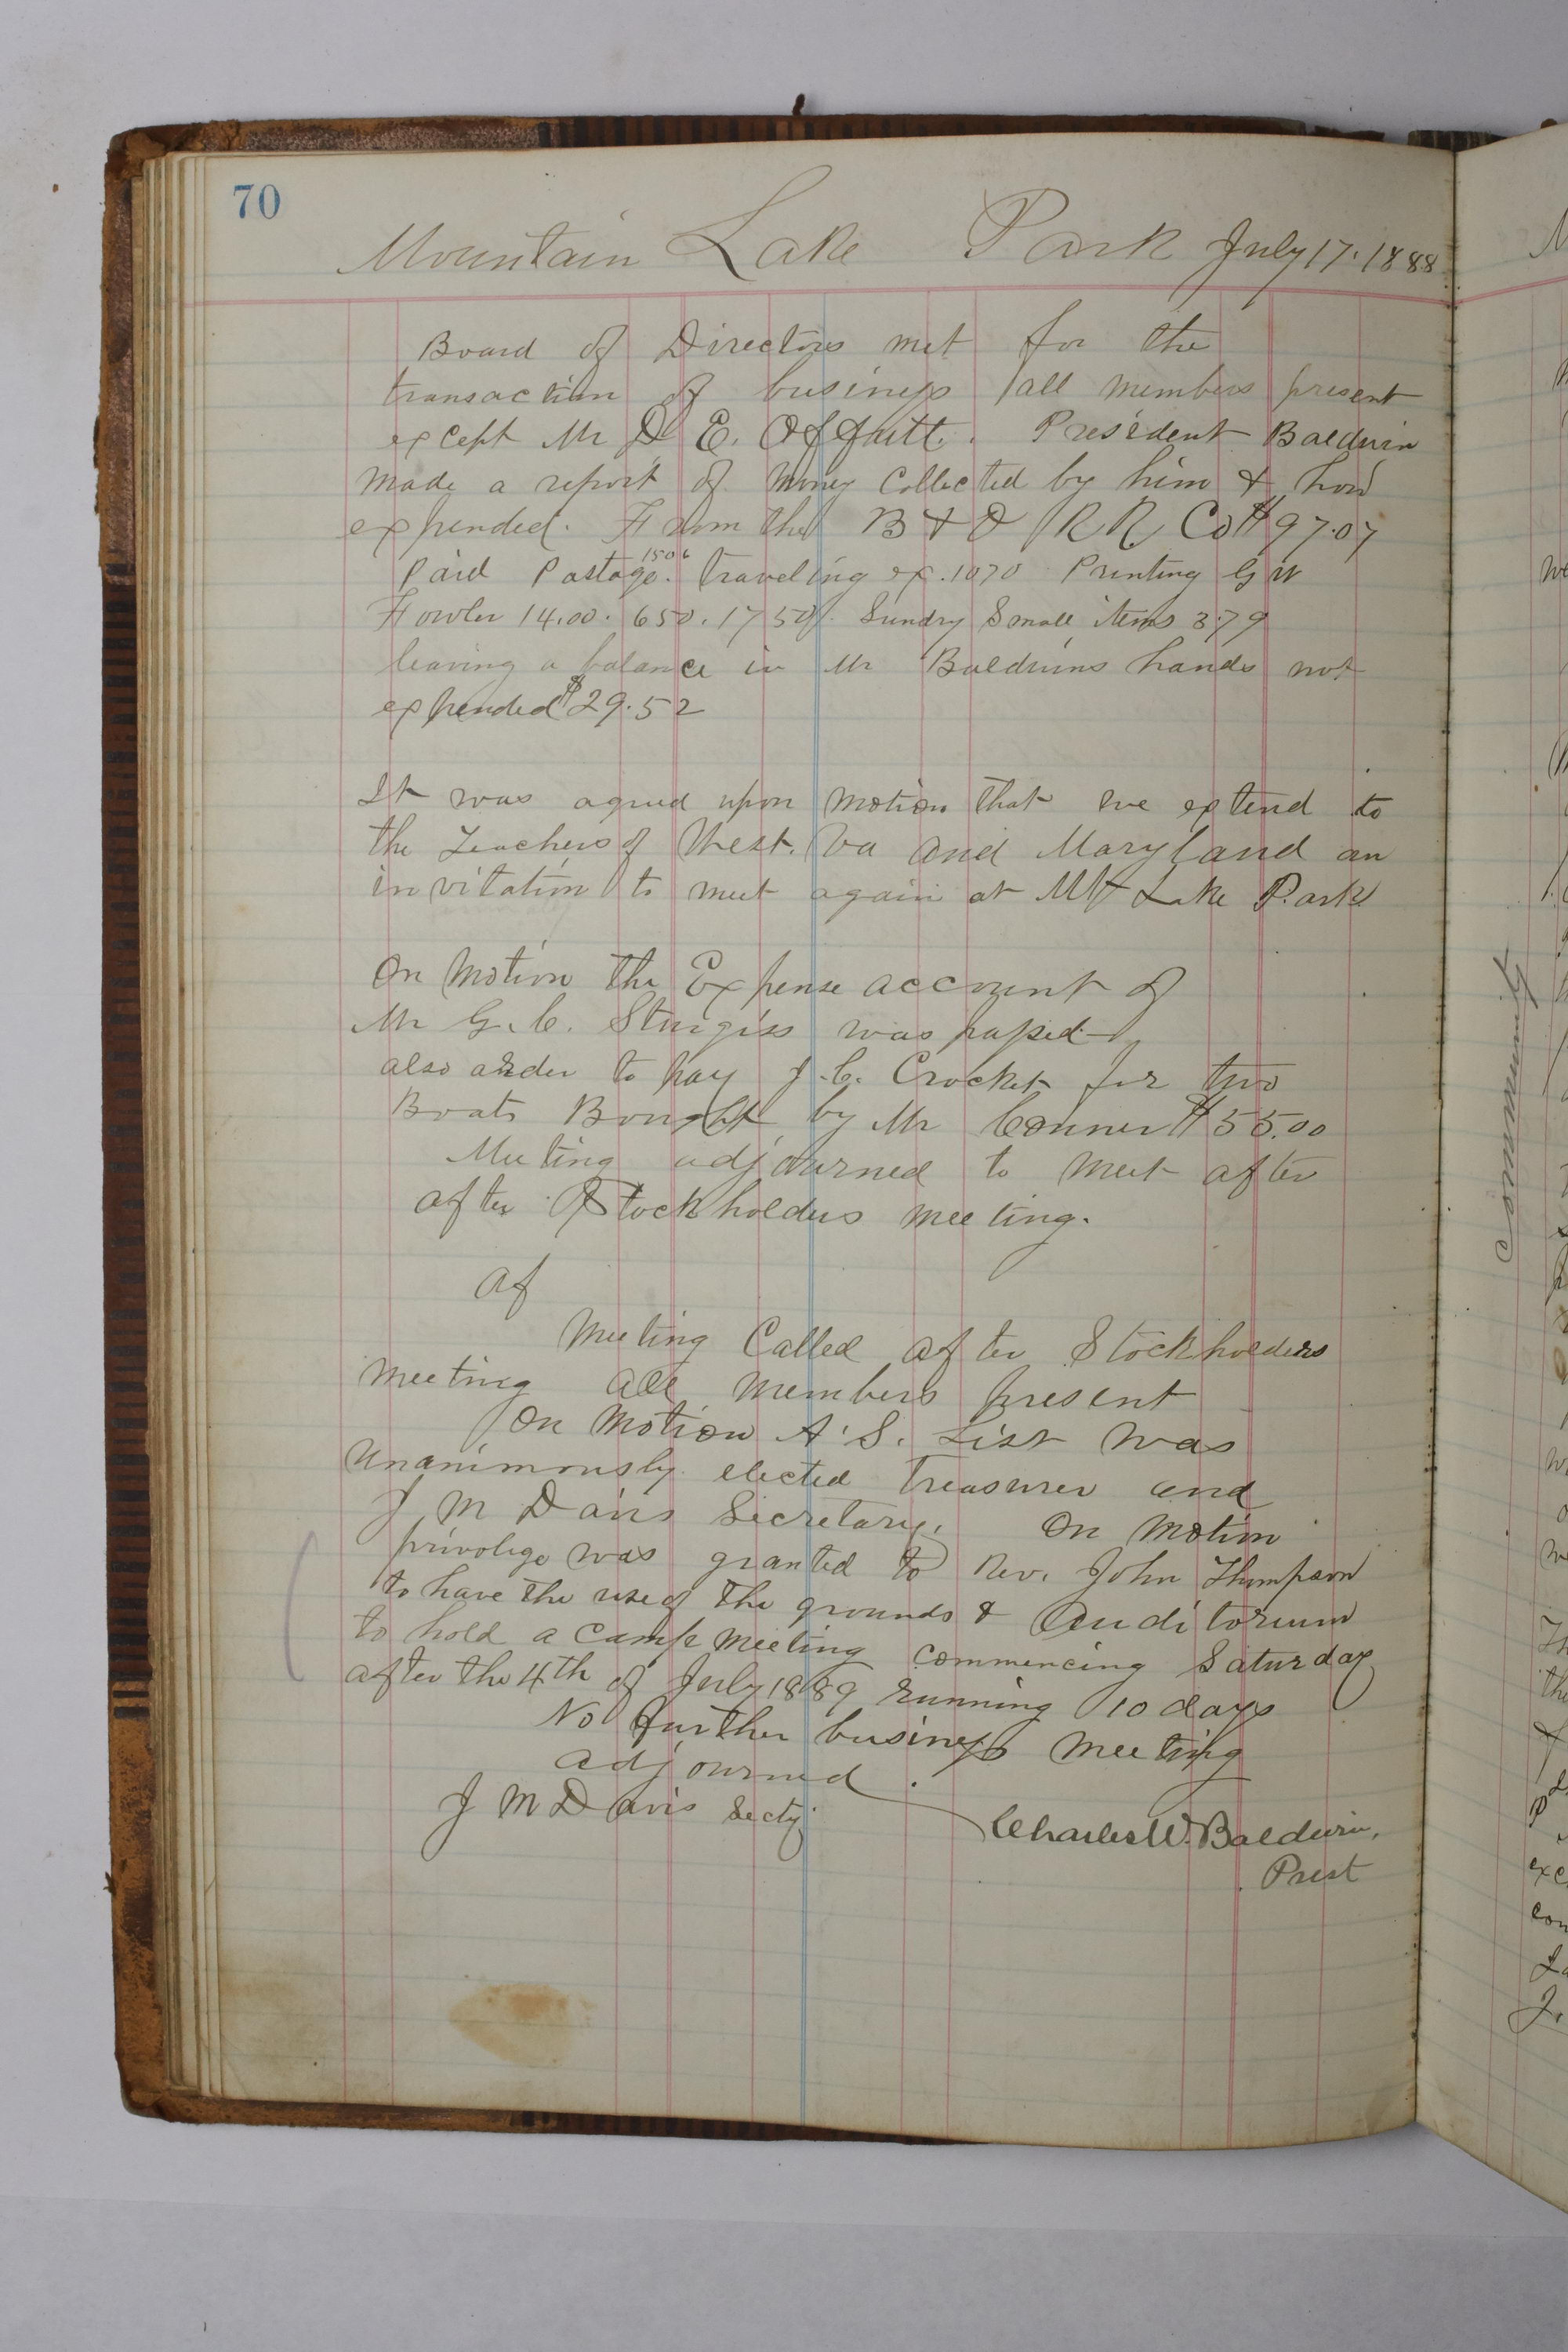 70
Mountain Lake Park July 17. 1888
Board of Directors met for the
transaction of business all members present
except Mr D. E. Offutt. President Baldwin
made a report of money collected by him & how
expended. From the B & O R R Co $97.07
Paid Postage 1506. traveling ex. 1070 Printing G W
Fowler 14.00. 650. 1750. Sundry Small items 3.79
leaving a balance in Mr Baldwins hands not
expended $29.52
It was agreed upon motion that we extend to
the Teachers of West. Va and Maryland an
invitation to meet again at Mt Lake Park
On Motion the Expense account of
Mr G. C. Sturgiss was passed
also order to pay J. C. Crocket for two
Boats Bought by Mr Conner $55.00
Meeting adjourned to meet after
after Stockholders meeting.
af
Meeting Called after Stockholders
meeting all members present
On Motion A. S. List was
unanimously elected Treasurer and
J M Davis Secretary. On motion
privolige was granted to Rev. John Thompson
to have the use of the grounds & Auditorium
to hold a camp meeting commencing Saturday
after the 4th of July 1889 running 10 days
No further business meeting
adjourned.
J M Davis Secty
Charles W. Baldwin,
Prest
Community